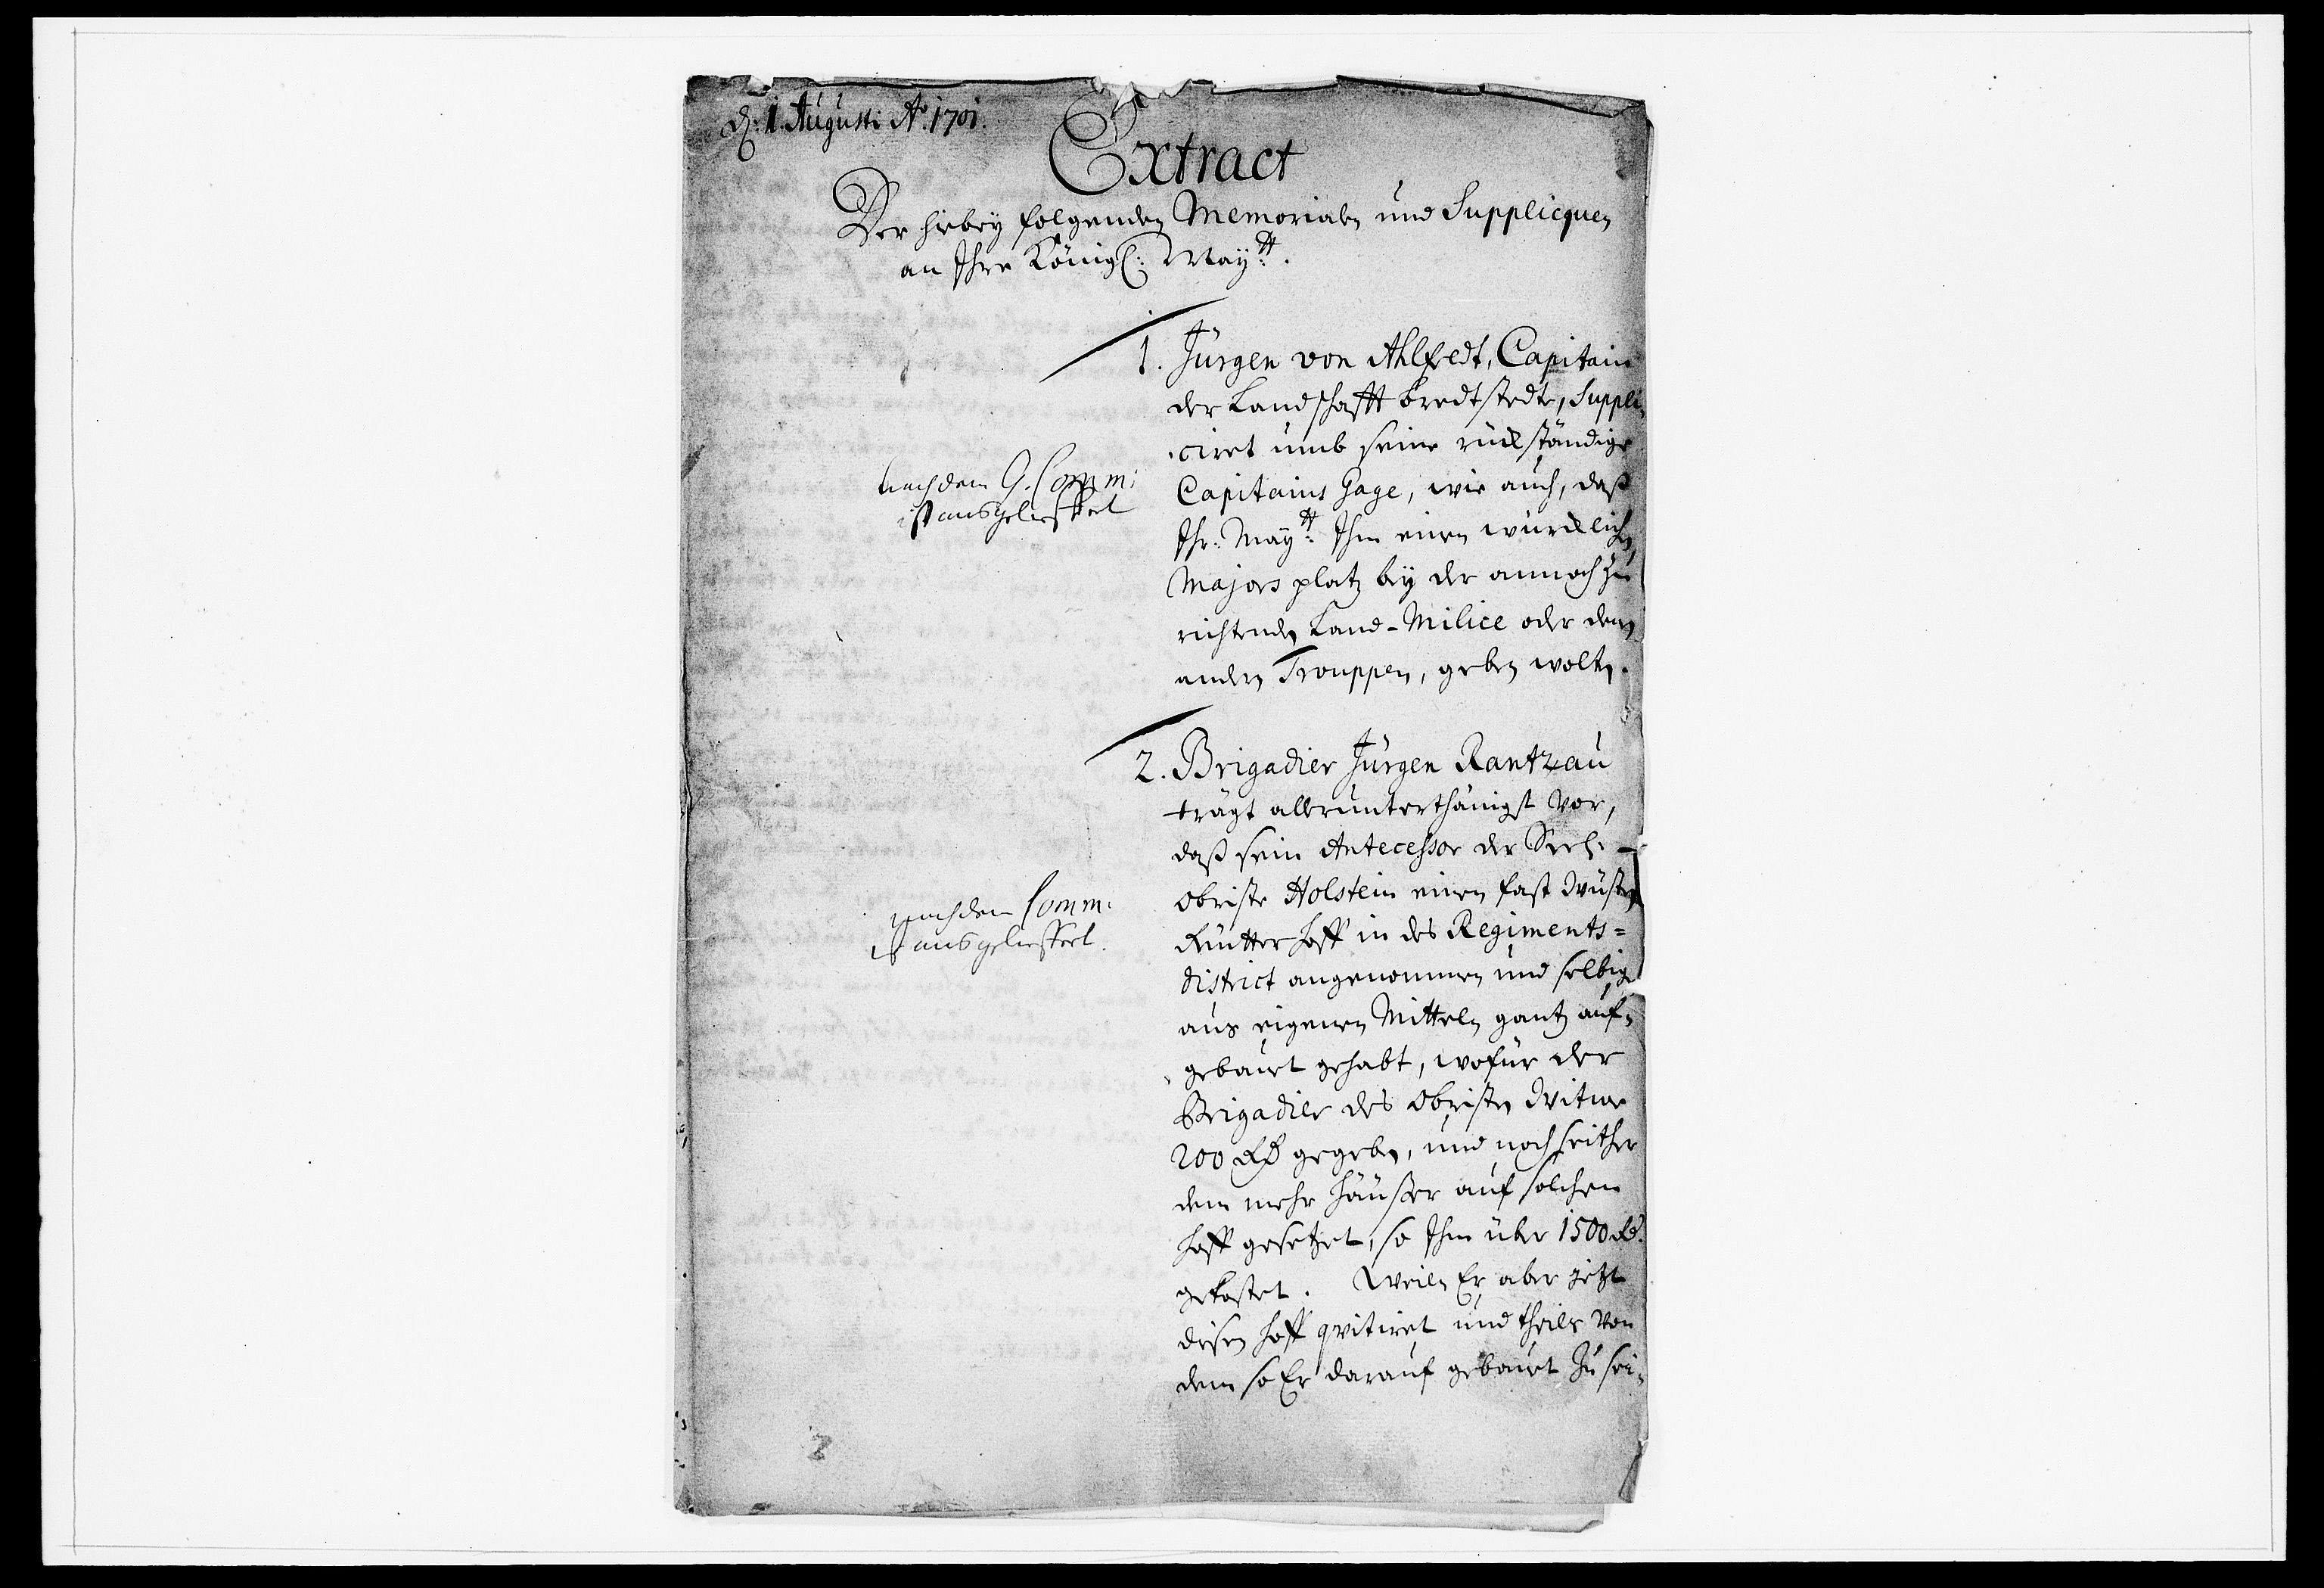 d: 1. Augusti Aº. 1701.
Extract
Der hiebey folgenden Memorialen und Supplicquen
an Ihre Königl: Maytt.
1. Jürgen von Ahlfedt, Capitain
der Landschafft Bredtstedte, Suppli-
ciret umb seine rückständige
Capitains Gage, wie auch, daß
Ihr: Maytt: Ihm einen würcklichen
Majors platz bey der annoch zu
richtenden Land-Milice oder denen
andern Trouppen, geben wolten.
nach dem G. Comm:
ist ausgelieffert
2. Brigadier Jürgen Rantzau
trägt allerunterthänigst vor,
daß sein Antecessor der Seel:
Obriste Holstein einen fast wüsten
Rütterhoff in des Regiments=
district angenommen und selbige
aus eigenen Mitteln gantz auf-
gebauet gehabt, wofür der
Brigadier des Obristen Witwe
200 Rd gegeben, und noch seither
dem mehr Häußer auf solchen
Hoff gesetzet, so Ihm über 1500 Rd.
gekostet. Weiln Er aber jetzt
diesen Hoff qvitiret und theils von
dem so Er darauf gebauet zu sei-
nach dem Comm:
ist ausgelieffert.
2